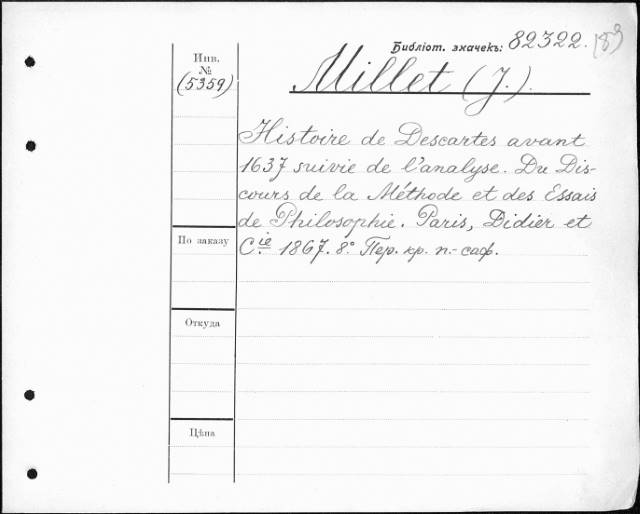 Библіот. значекъ: 82322.
Инв.
№
(5359)
Millet (J.).
Histoire de Descartes avant
1637 suivie de l'analyse. Du Dis-
cours de la Méthode et des Essais
de Philosophie. Paris, Didier et
Cie 1867. 8° Пер. кр. п.-саф.
По заказу
Откуда
Цѣна